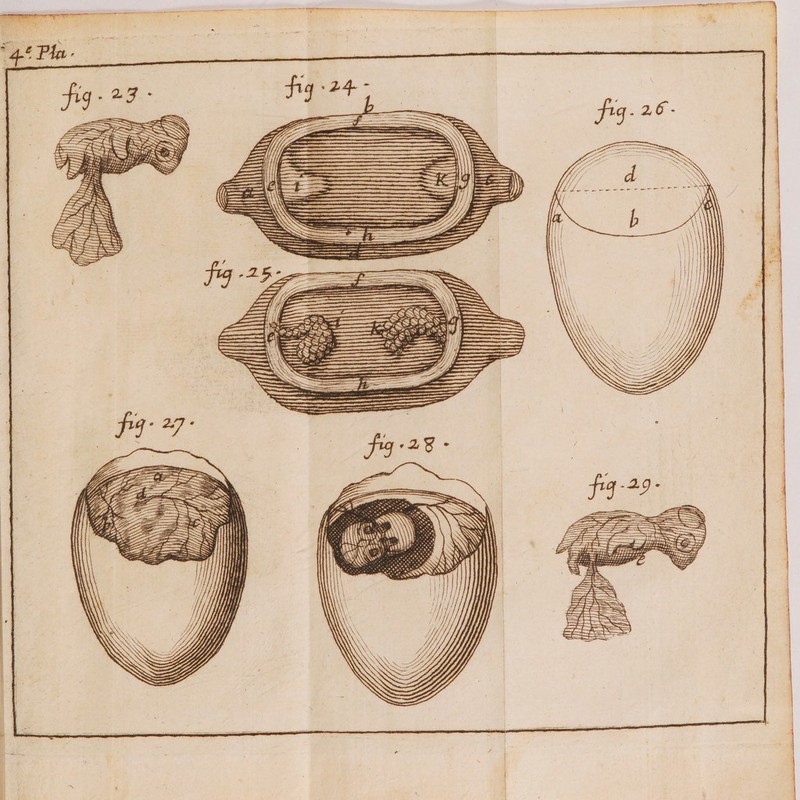 4.e Pla.
fig. 23.
fig. 24.
b
f
a
e
i
K
g
c
h
d
fig. 25.
f
e
i
k
g
h
fig. 26.
d
a
c
b
fig. 27.
a
d
c
b
fig. 28.
fig. 29.
e